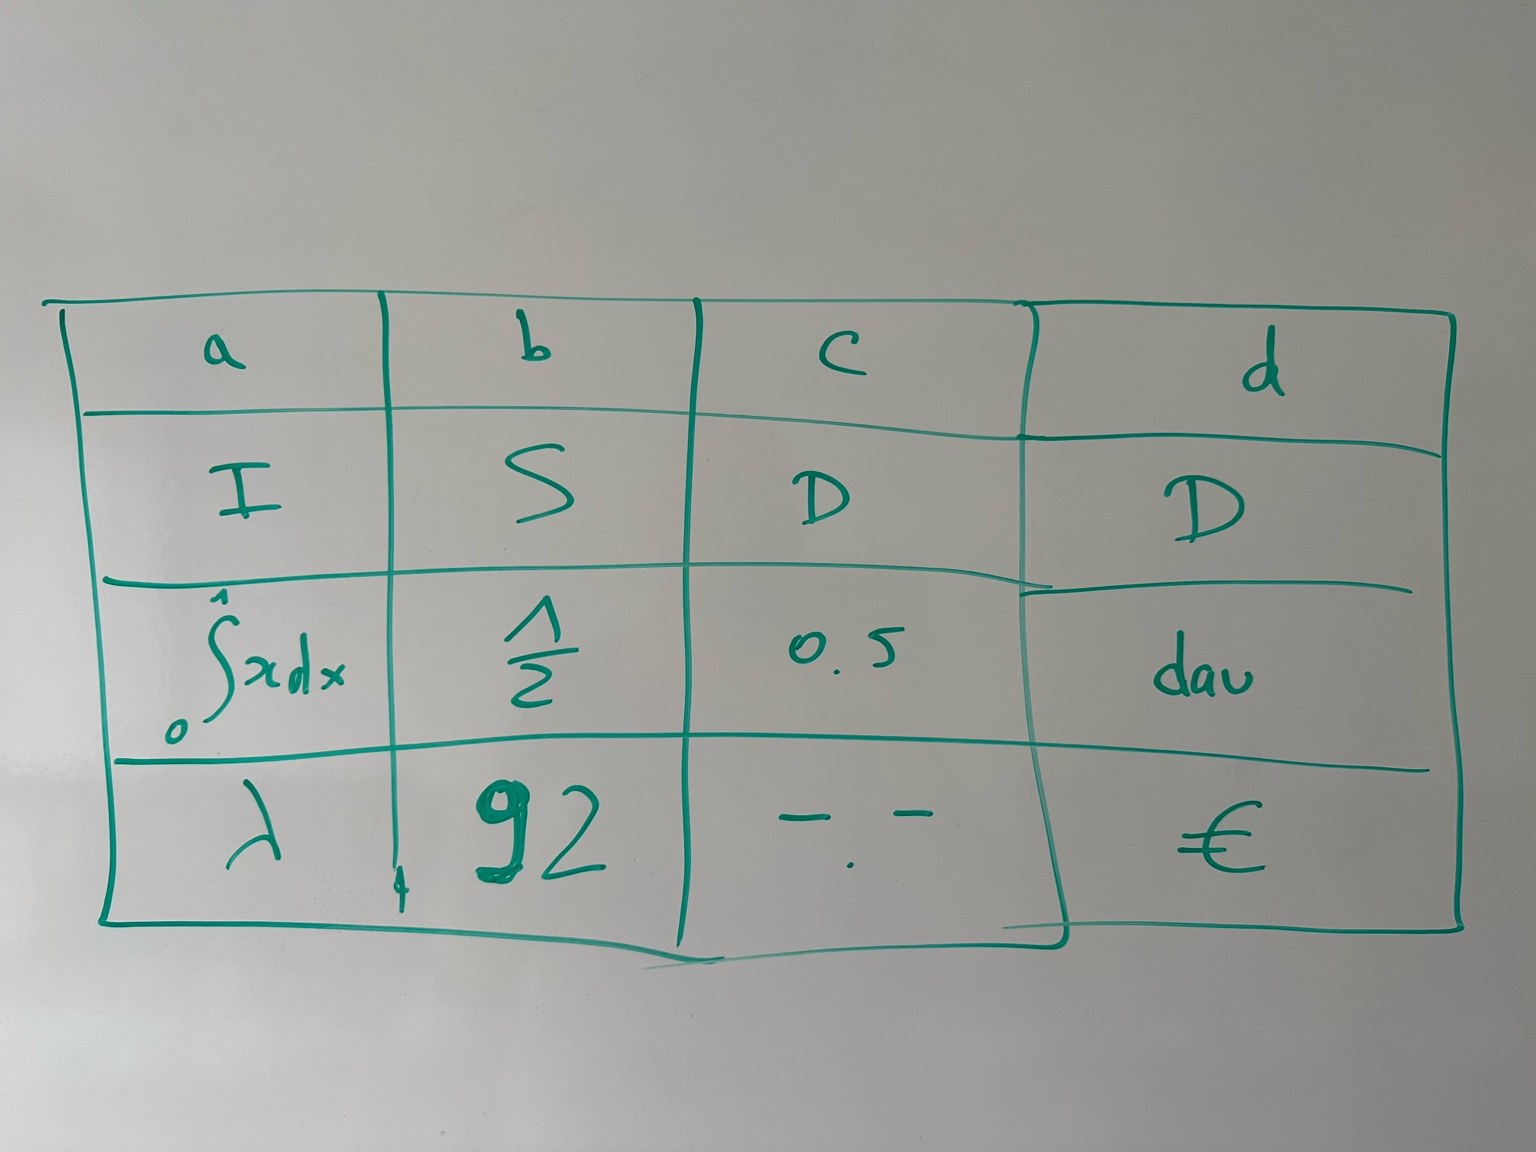 a b c d
I S D D
∫₀¹ x dx 1/2 0.5 dau
λ 92 -.- €